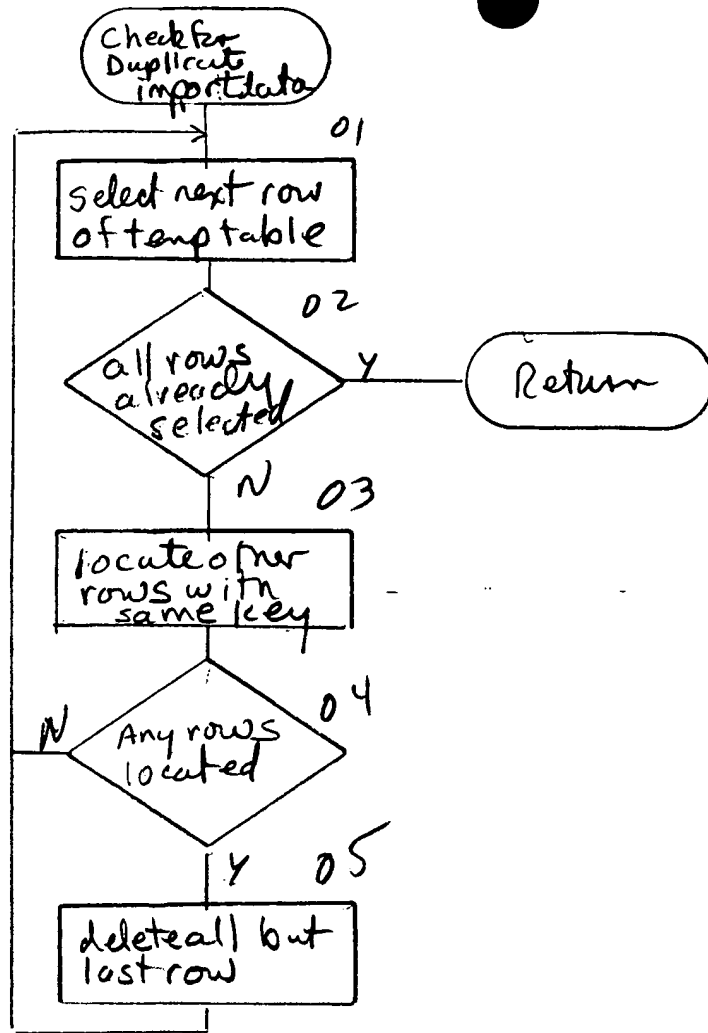 Check for
Duplicate
import data
01
select next row
of temp table
02
all rows
already
selected
Y
Return
N
03
locate other
rows with
same key
04
N
Any rows
located
Y
05
delete all but
last row